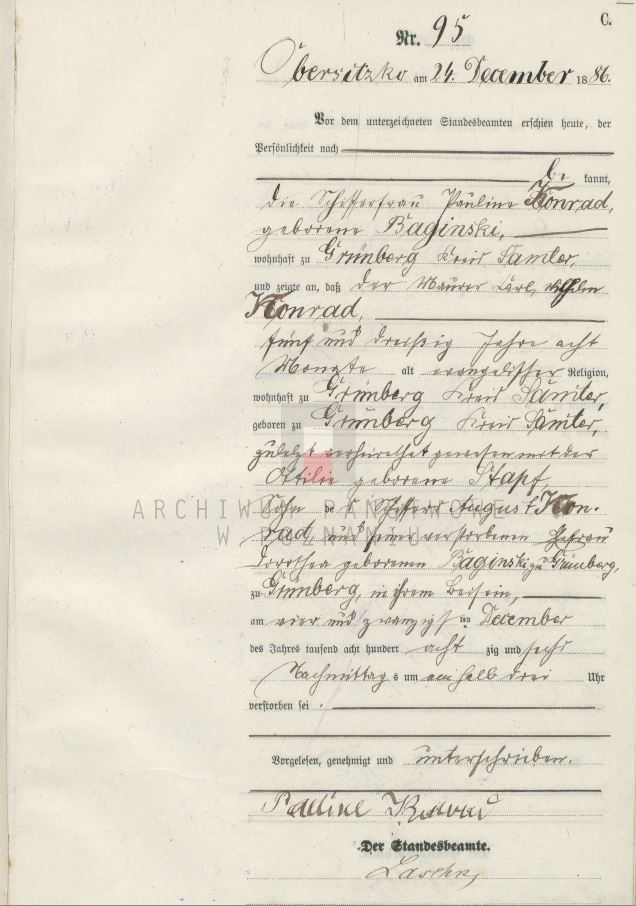 C.
Nr. 95
Obersitzko am 24. December 1886.
Vor dem unterzeichneten Standesbeamten erschien heute, der
Persönlichkeit nach
be kannt,
die Schifferfrau Pauline Konrad,
geborene Baginski,
wohnhaft zu Grünberg Kreis Samter,
und zeigte an, daß der Maurer Carl Wilhelm
Konrad,
fünf und dreißig Jahre acht
Monate alt evangelischer Religion,
wohnhaft zu Grünberg Kreis Samter,
geboren zu Grünberg Kreis Samter,
zuletzt verheirathet gewesen mit der
Ottilie geborene Stapf,
Sohn des Schiffers August Kon-
rad, und seiner verstorbenen Ehefrau
Dorothea geborenen Baginski zu Grünberg,
zu Grünberg, in ihrem Beisein,
am vier und zwanzigsten December
des Jahres tausend acht hundert acht zig und sechs
Nachmittag s um ein halb drei Uhr
verstorben sei.
Vorgelesen, genehmigt und unterschrieben.
Pauline Konrad
Der Standesbeamte.
ARCHIWUM PAŃSTWOWE
W POZNANIU